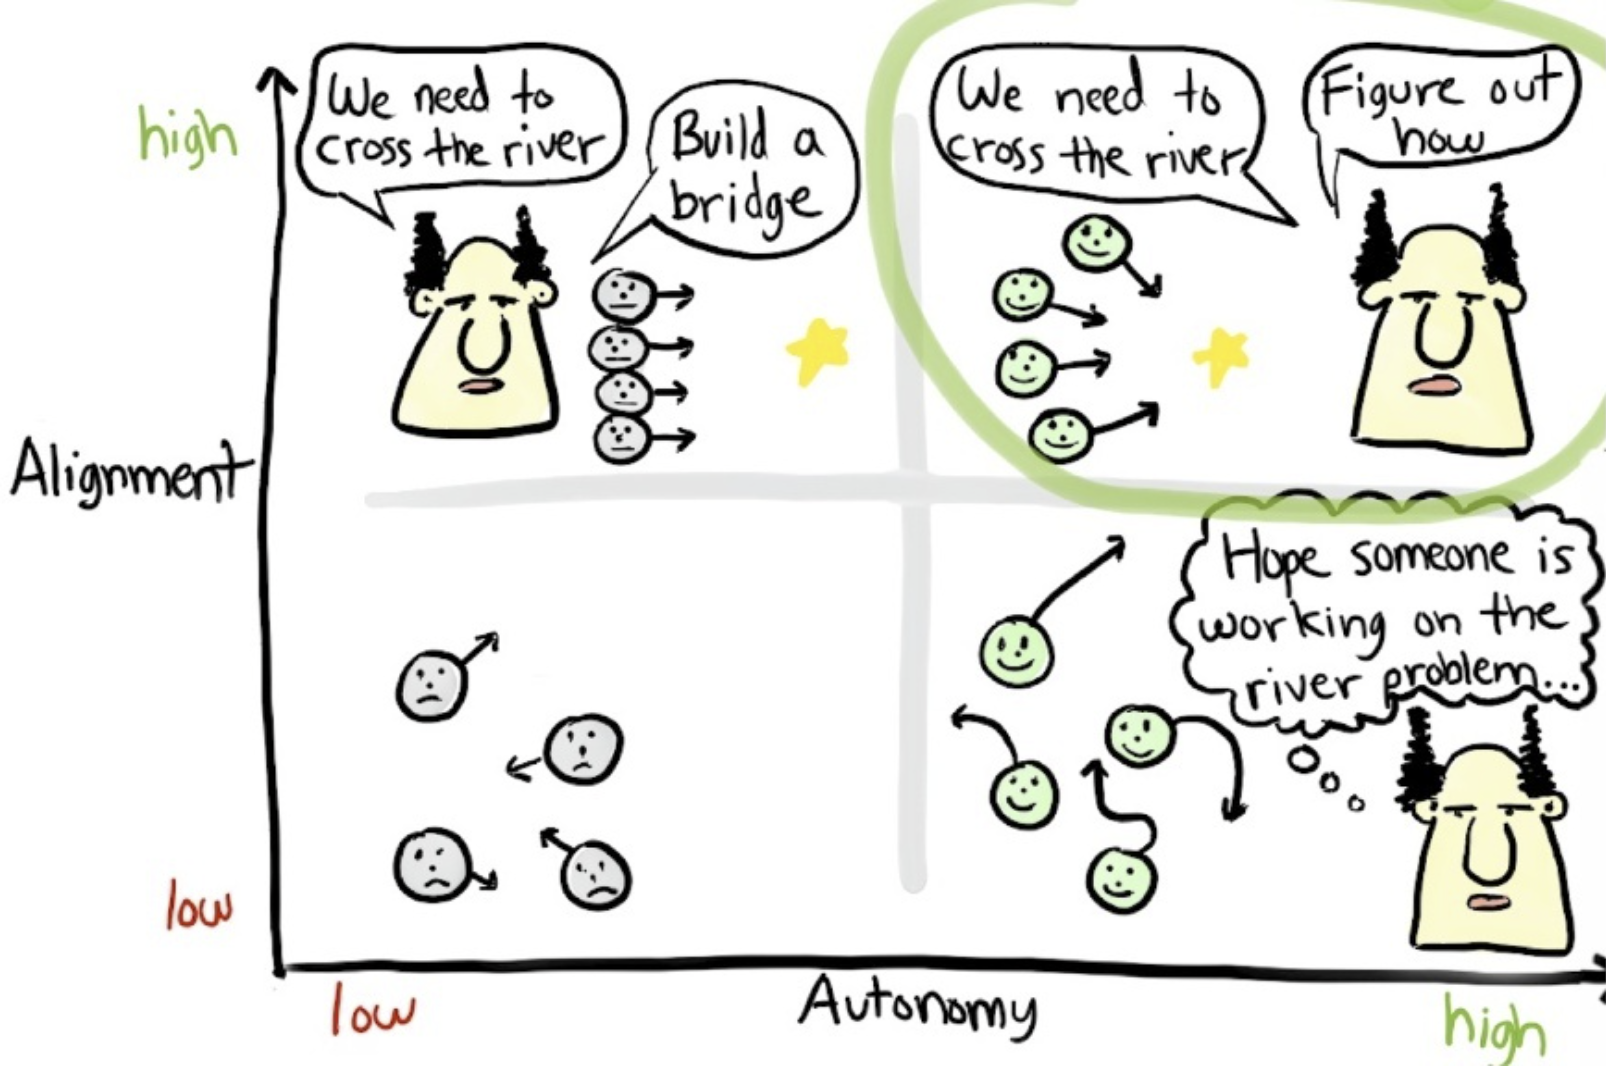 high
We need to
cross the river
Build a
bridge
We need to
cross the river
Figure out
how
Alignment
Hope someone is
working on the
river problem...
low
low
Autonomy
high